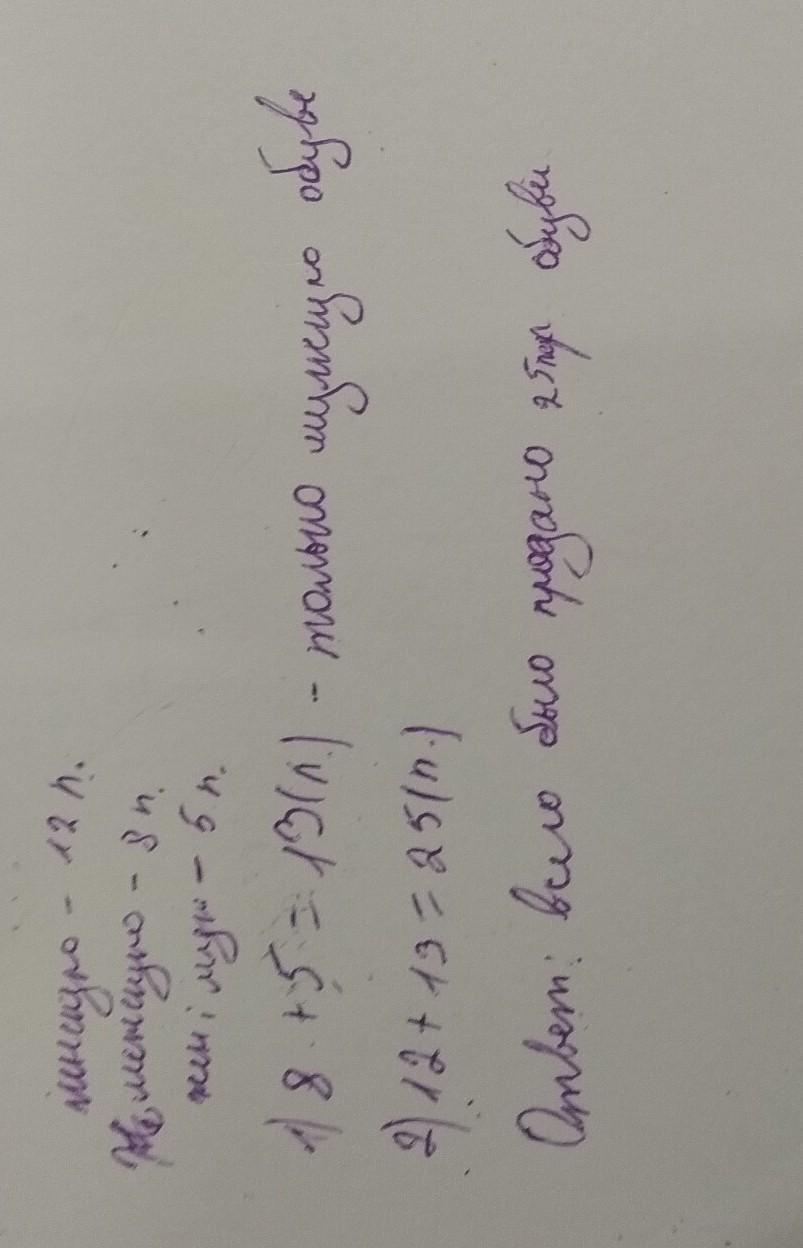 женскую - 12 п.
Не женскую - 8 п.
жен, муж - 5 п.
1) 8 + 5 = 13(п.) - только мужскую обувь
2) 12 + 13 = 25(п.)
Ответ: всего было продано 25 пар обуви